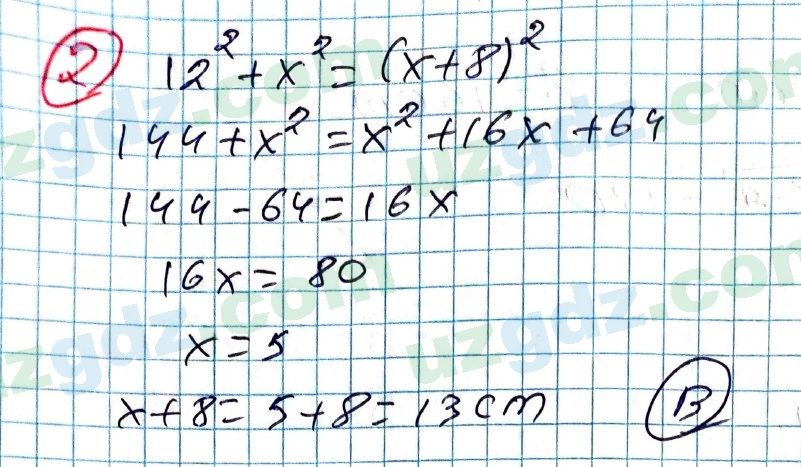 2 12² + x² = (x+8)²
144 + x² = x² + 16x + 64
144 - 64 = 16x
16x = 80
x = 5
x+8 = 5+8 = 13 cm B
uzgdz.com
uzgdz.com
uzgdz.com
uzgdz.com